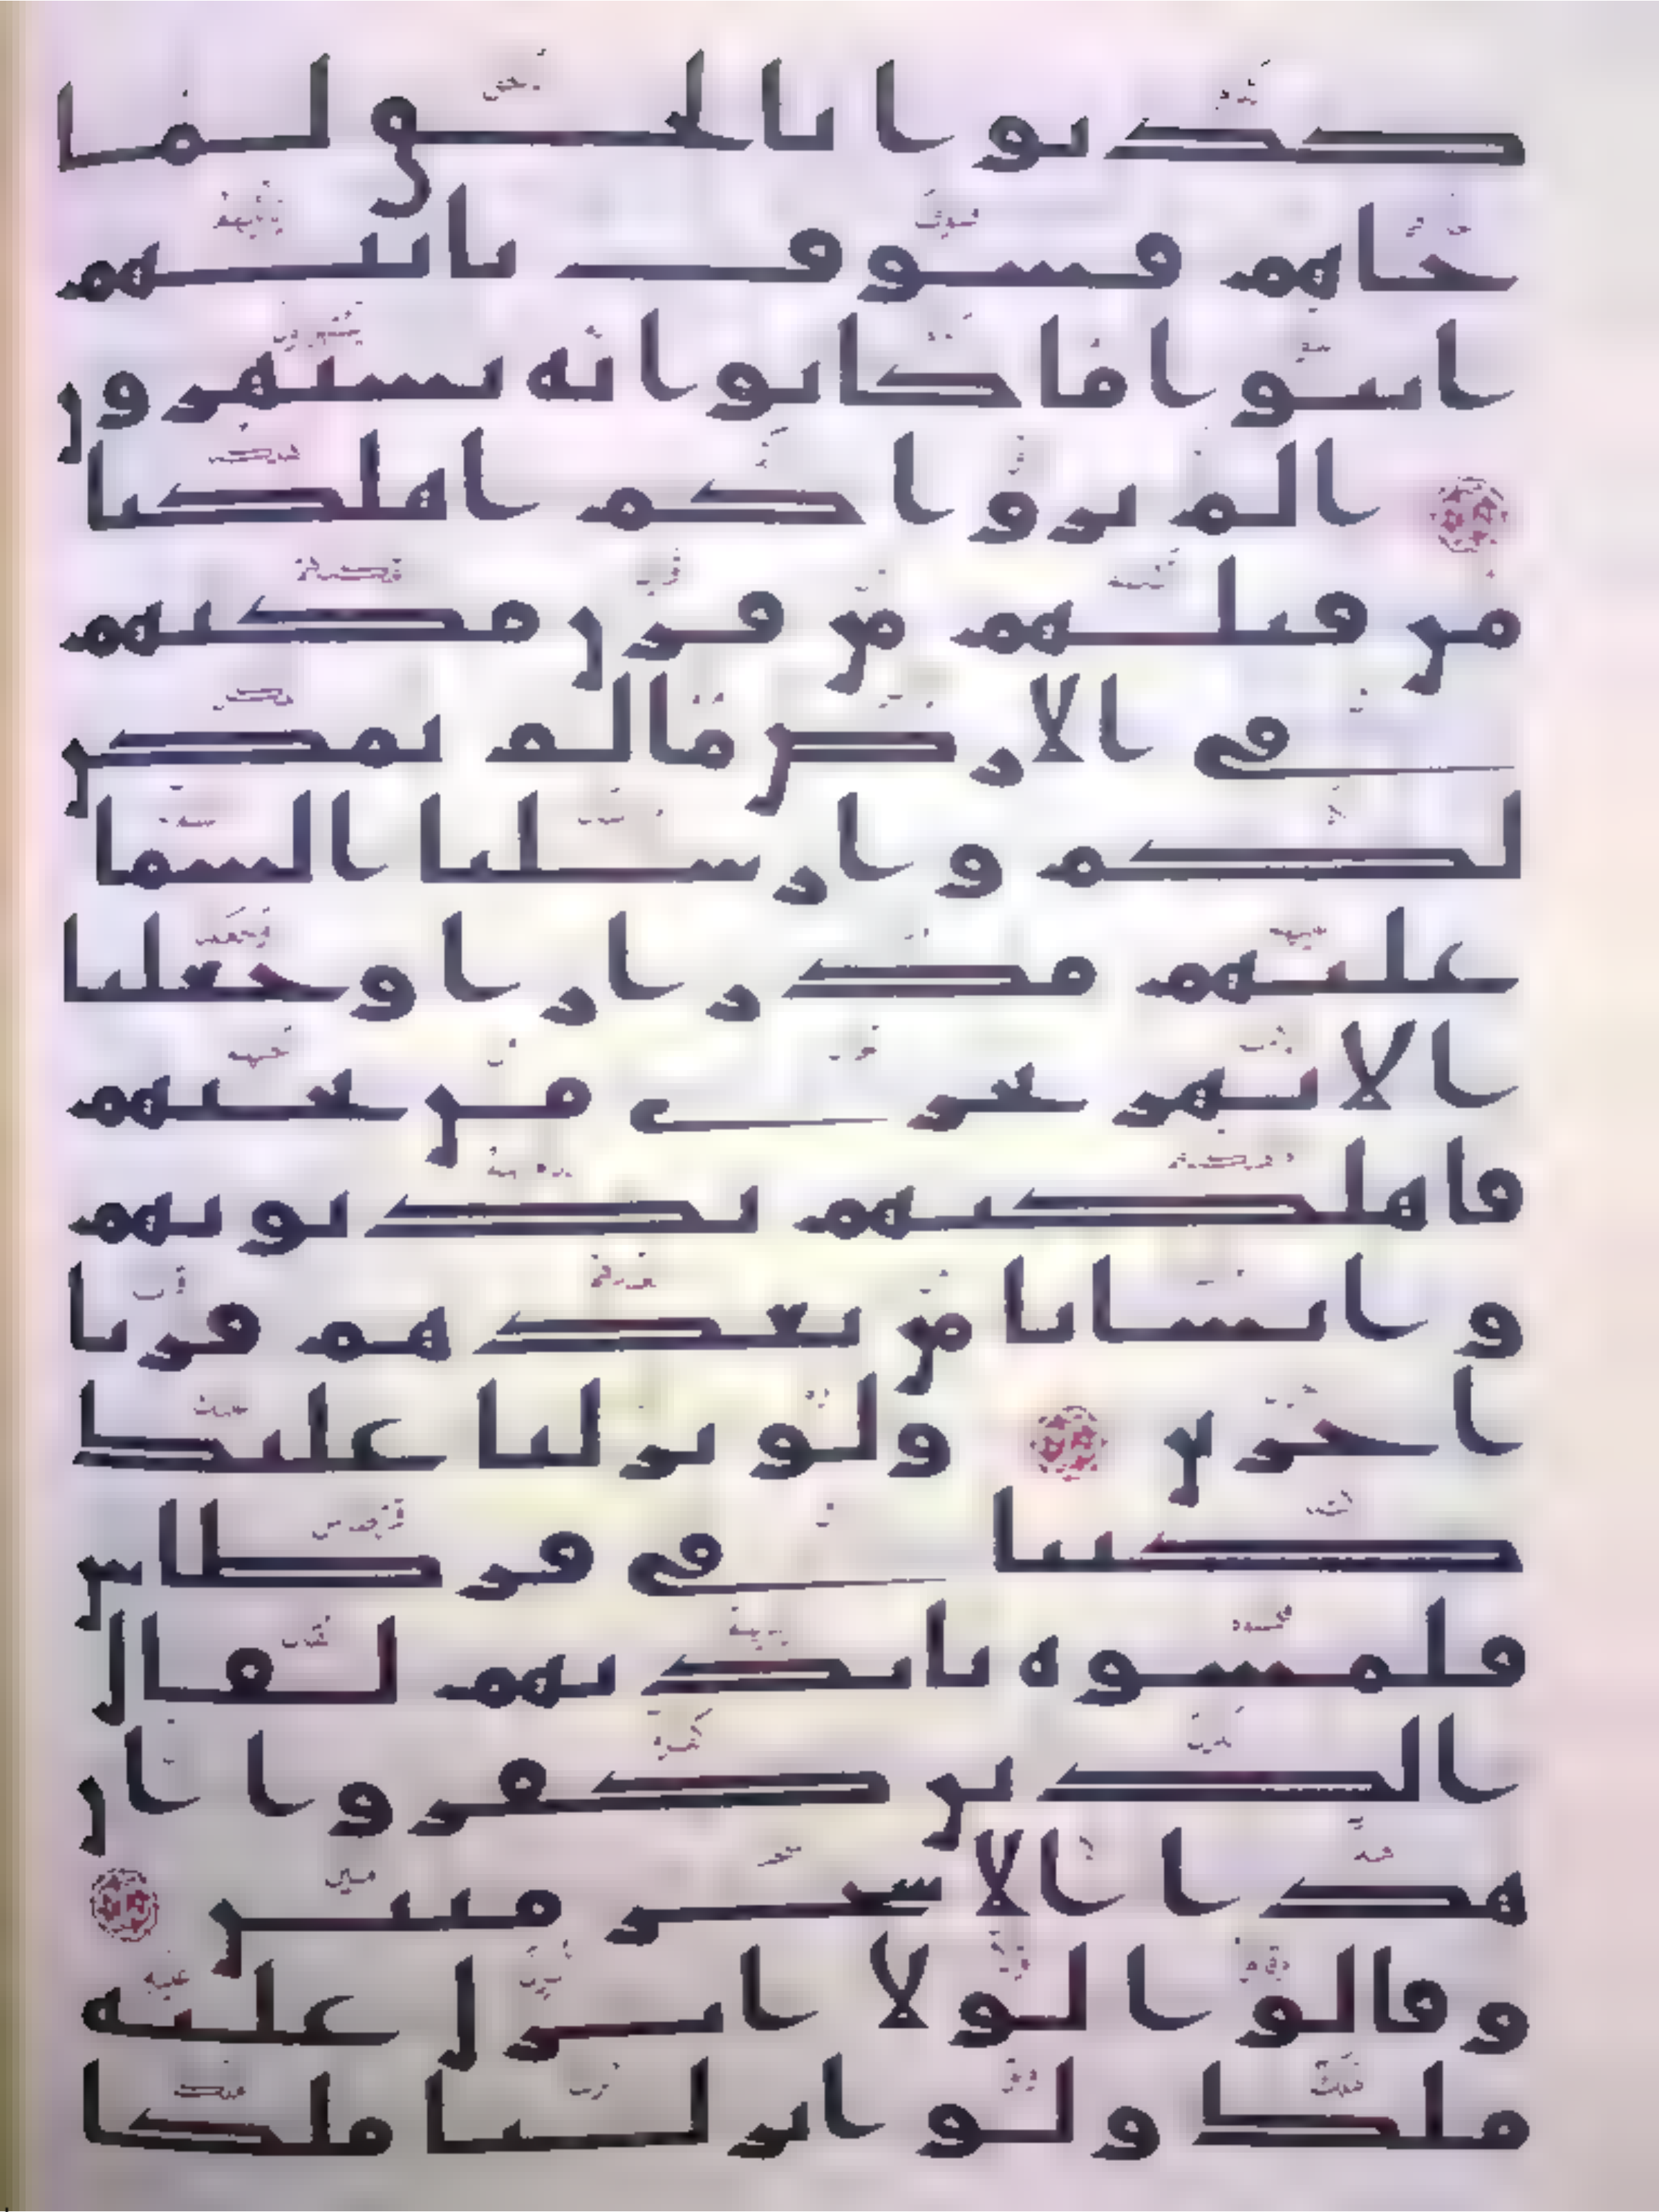 كذبوا بالحق لما
جاهم فسوف ياتيهم
انبوا ما كانوا به يستهزون
الم يروا كم اهلكنا
من قبلهم من قرن مكنهم
في الارض ما لم نمكن
لكم وارسلنا السما
عليهم مدرارا وجعلنا
الانهر تجري من تحتهم
فاهلكنهم بذنوبهم
وانشانا من بعدهم قرنا
اخرين ولو نزلنا عليك
كتبا في قرطاس
فلمسوه بايديهم لقال
الذين كفروا ان
هذا الا سحر مبين
وقالوا لولا انزل عليه
ملك ولو انزلنا ملكا